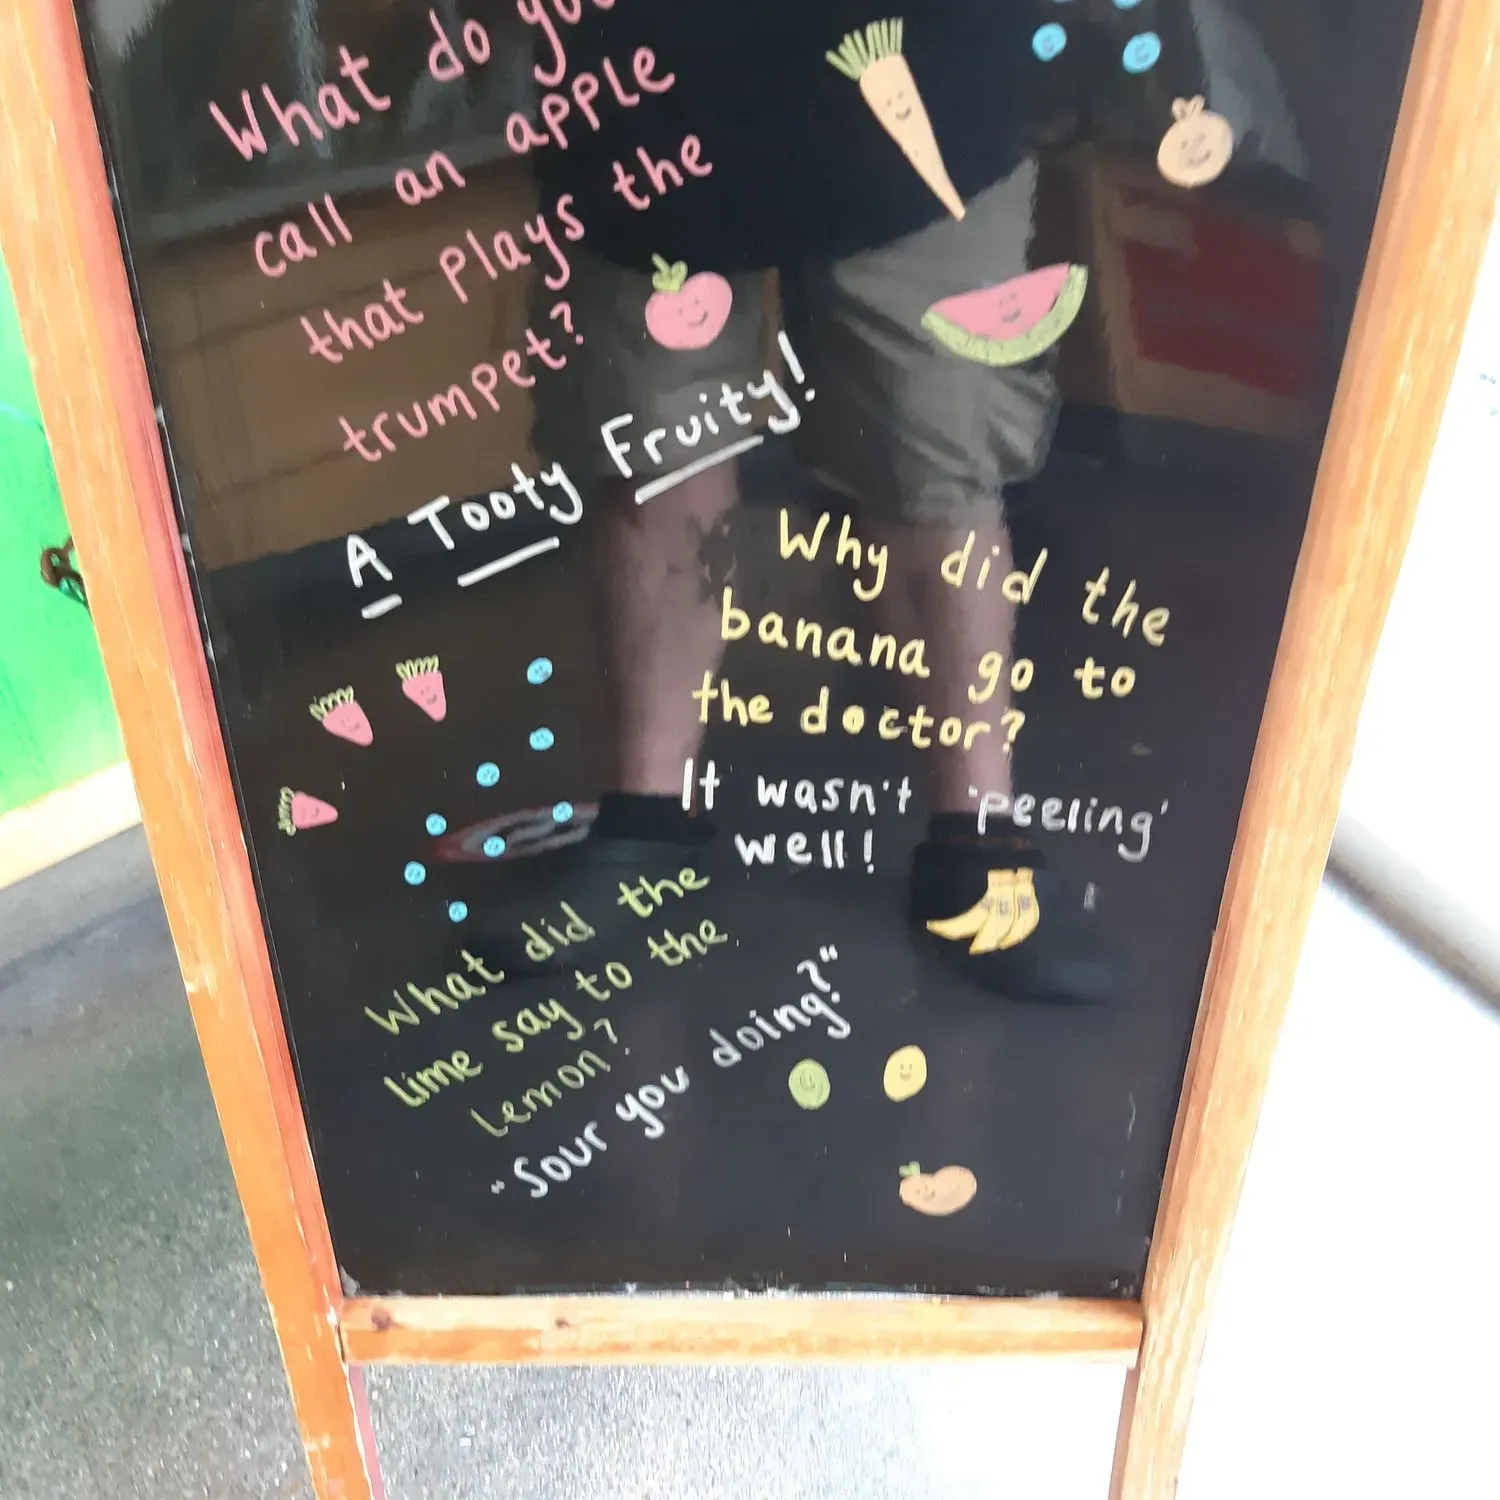 What do you
call an apple
that plays the
trumpet?
A Tooty Fruity!
Why did the
banana go to
the doctor?
It wasn't 'peeling'
well!
What did the
lime say to the
lemon?
"Sour you doing?"